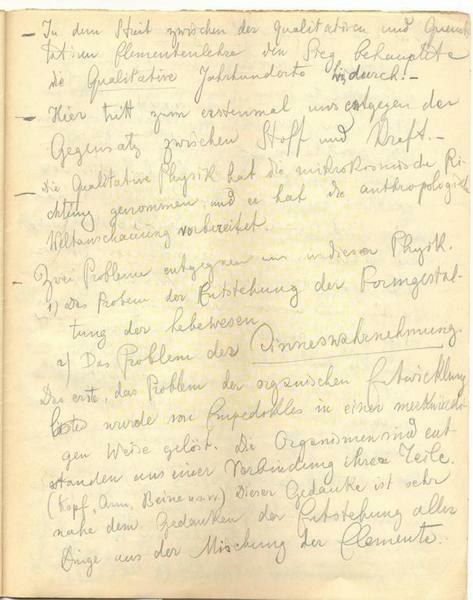 – In dem Streit zwischen der qualitativen und Quanti-
tativen Elementenlehre den Sieg behauptete
die Qualitative Jahrhunderte hindurch. –
– Hier tritt zum erstenmal uns entgegen der
Gegensatz zwischen Stoff und Kraft. –
– die Qualitative Physik hat die mikrokosmische Ri-
chtung genommen, und er hat die anthropologisch
Weltanschauung vorbereitet.
– Zwei Probleme entgegnen uns in dieser Physik.
1) das Problem der Entstehung der Formgestal-
tung der Lebewesen
2) Das Problem der Sinneswahrnehmung.
Das erste, das Problem der organischen Entwicklung
wurde von Empedokles in einer merkwürdi-
gen Weise gelöst. Die Organismen sind ent
standen aus einer Verbindung ihrer Teile.
(Kopf, Arm, Beine u.s.w.) Dieser Gedanke ist sehr
nahe dem Gedanken der Entstehung aller
Dinge aus der Mischung der Elemente.